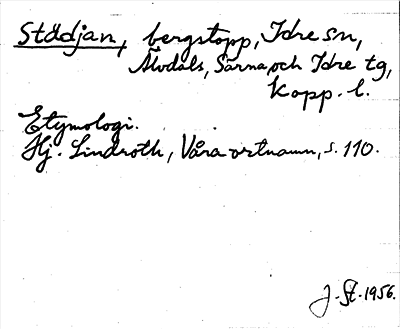 Städjan, bergstopp, Idre sn,
Älvdals, Särna och Idre tg,
Kopp. l.
Etymologi.
Hj. Lindroth, Våra ortnamn, s. 110.
J. St. 1956.